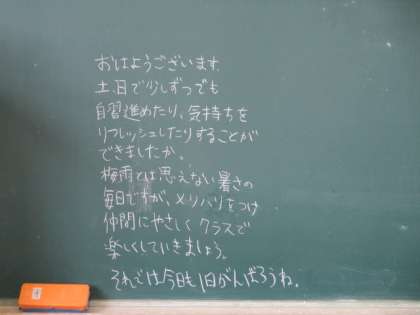 おはようございます。
土、日で少しずつでも
自習進めたり、気持ちを
リフレッシュしたりすることが
できましたか。
梅雨とは思えない暑さの
毎日ですが、メリハリをつけ
仲間にやさしく クラスで
楽しくしていきましょう。
それでは今日も1日がんばろうね。